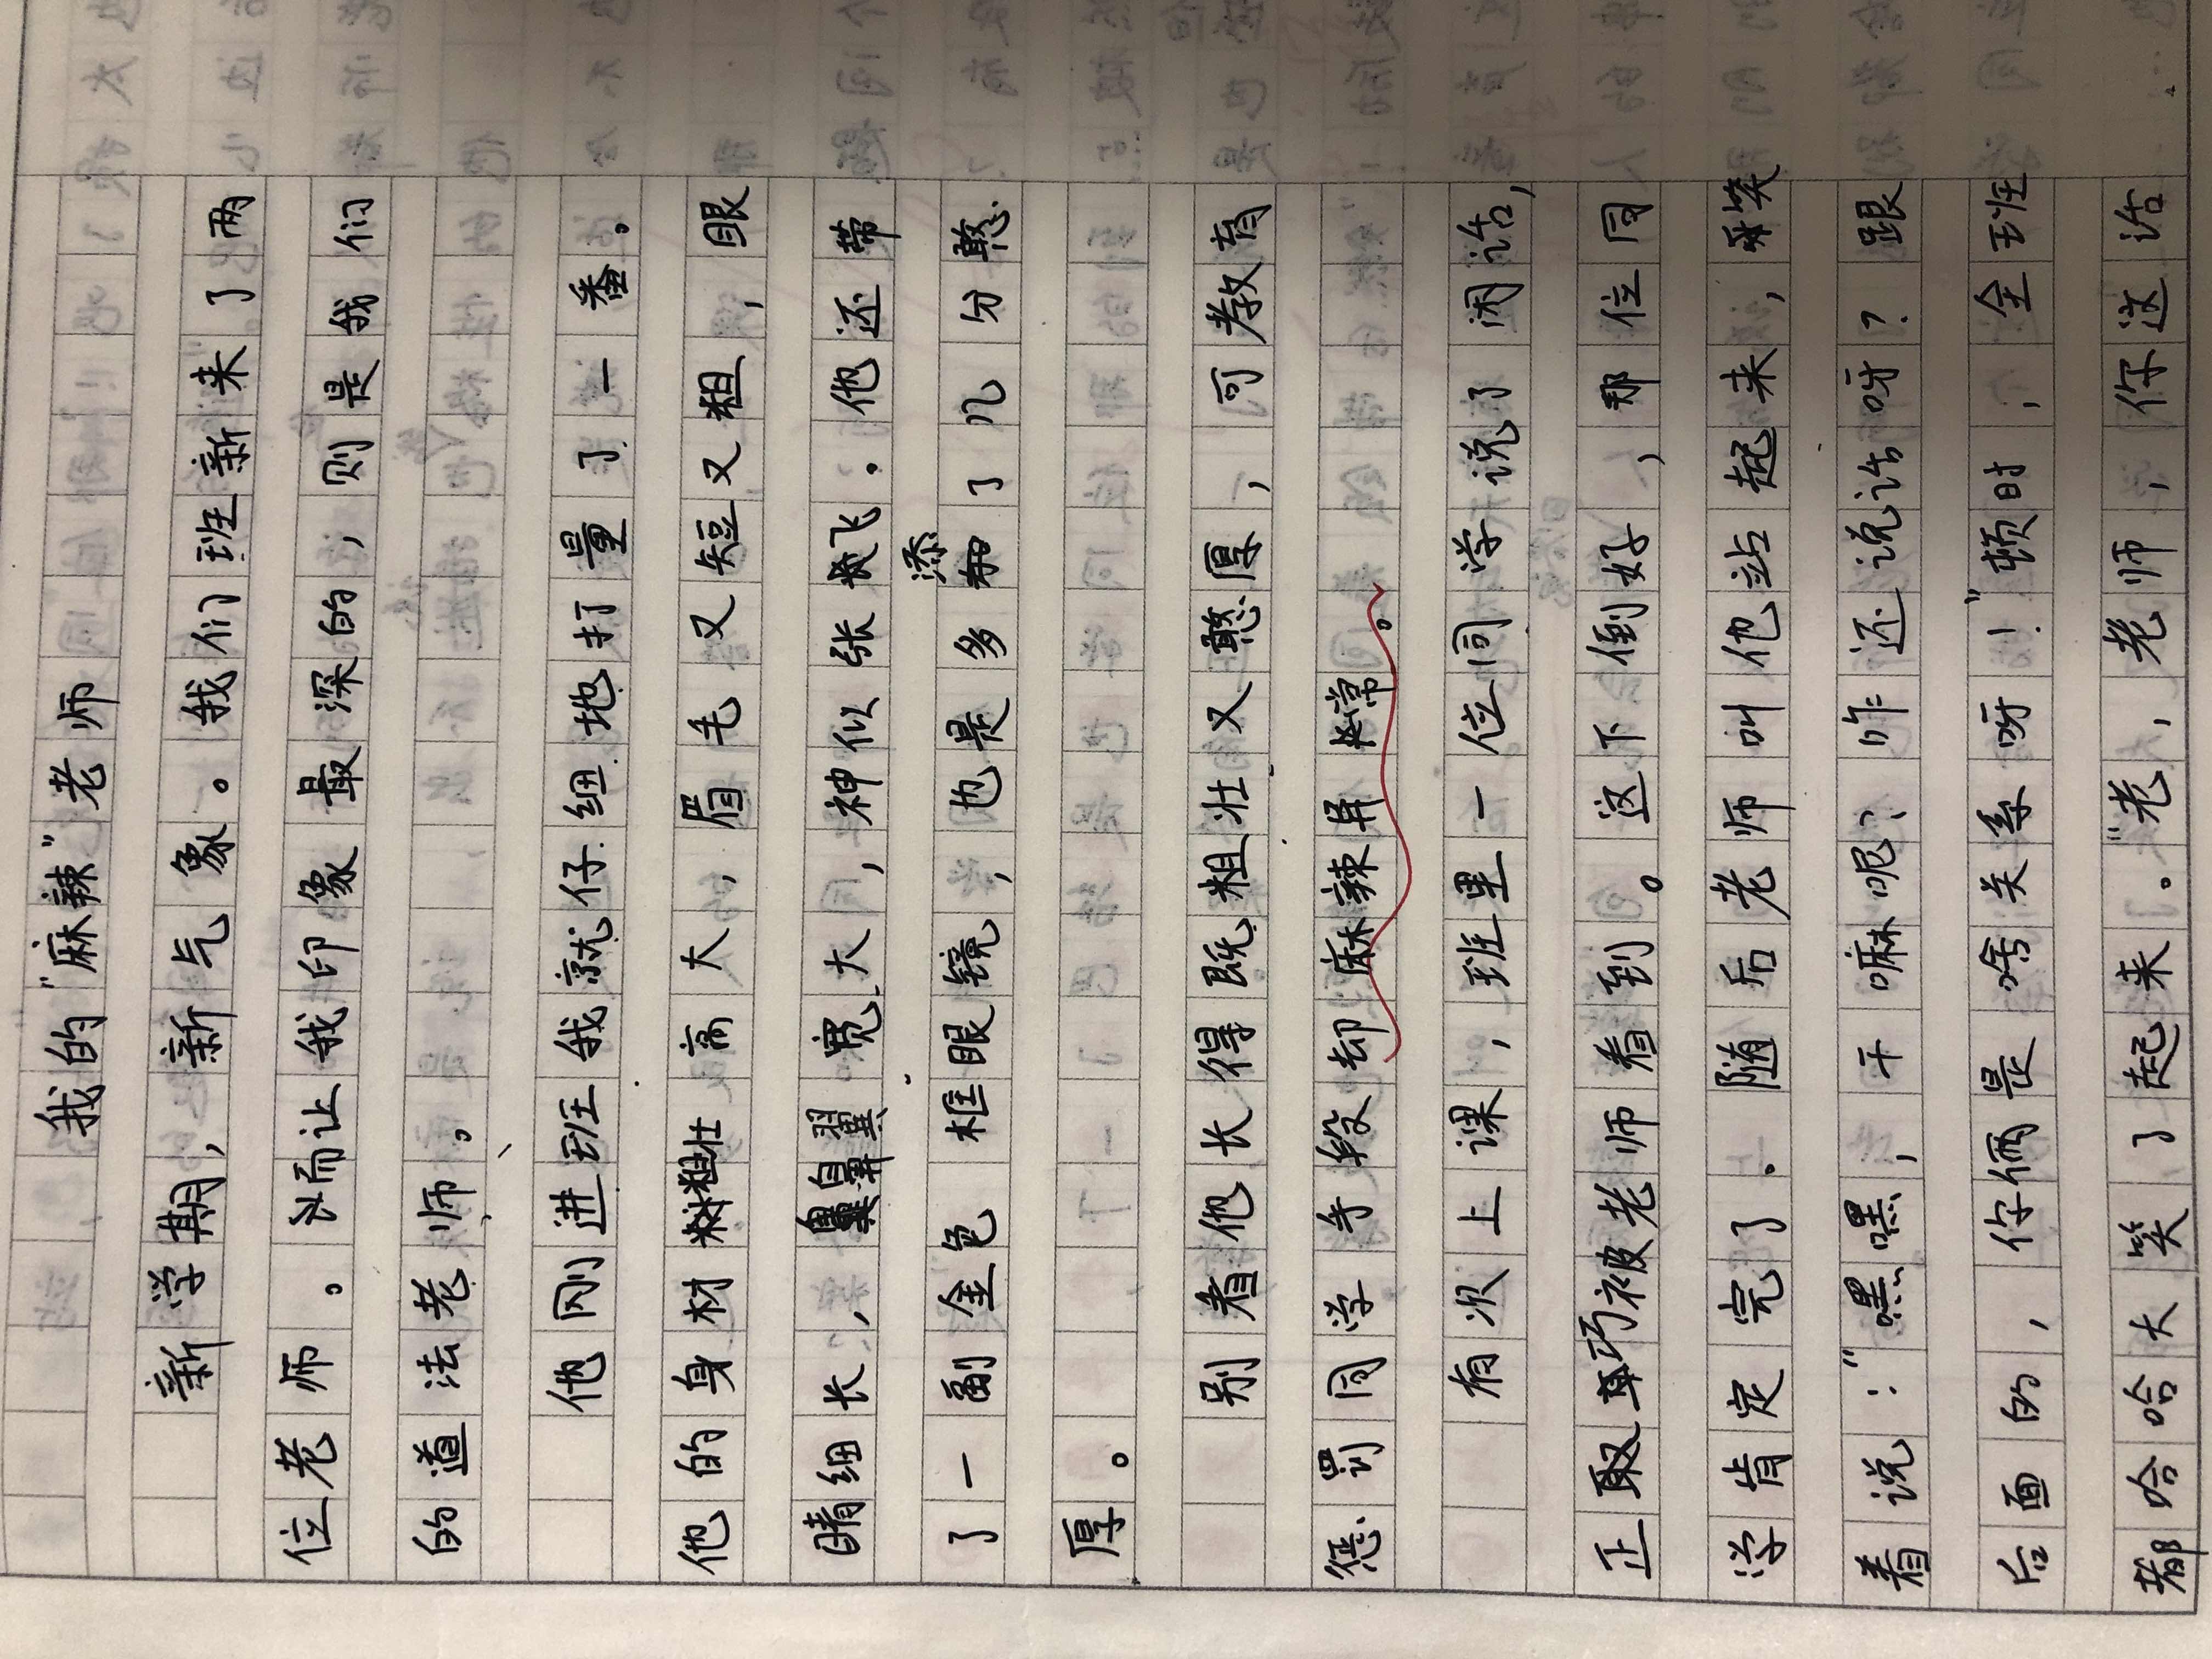 我的"麻辣"老师
新学期，新气象。我们班新来了两
位老师。而让我印象最深的，则是我们
的道法老师。
他刚进班我就仔细地打量了一番。
他的身材粗壮高大，眉毛又短又粗，眼
睛细长，鼻翼宽大，神似张飞。他还带
了一副金色框眼镜，也是多添了几分憨
厚。
别看他长得既粗壮又憨厚，可教育
惩罚同学手段却麻辣异常。
有次上课，班里一位同学说了闲话，
正取巧被老师看到。这下倒好，那位同
学肯定完了。随后老师叫他站起来，笑
着说："嘿嘿，干嘛呢？咋还说话呀？跟
后面的，你俩是啥关系呀！"顿时，全班
都哈哈大笑了起来。"老，老师，你这话